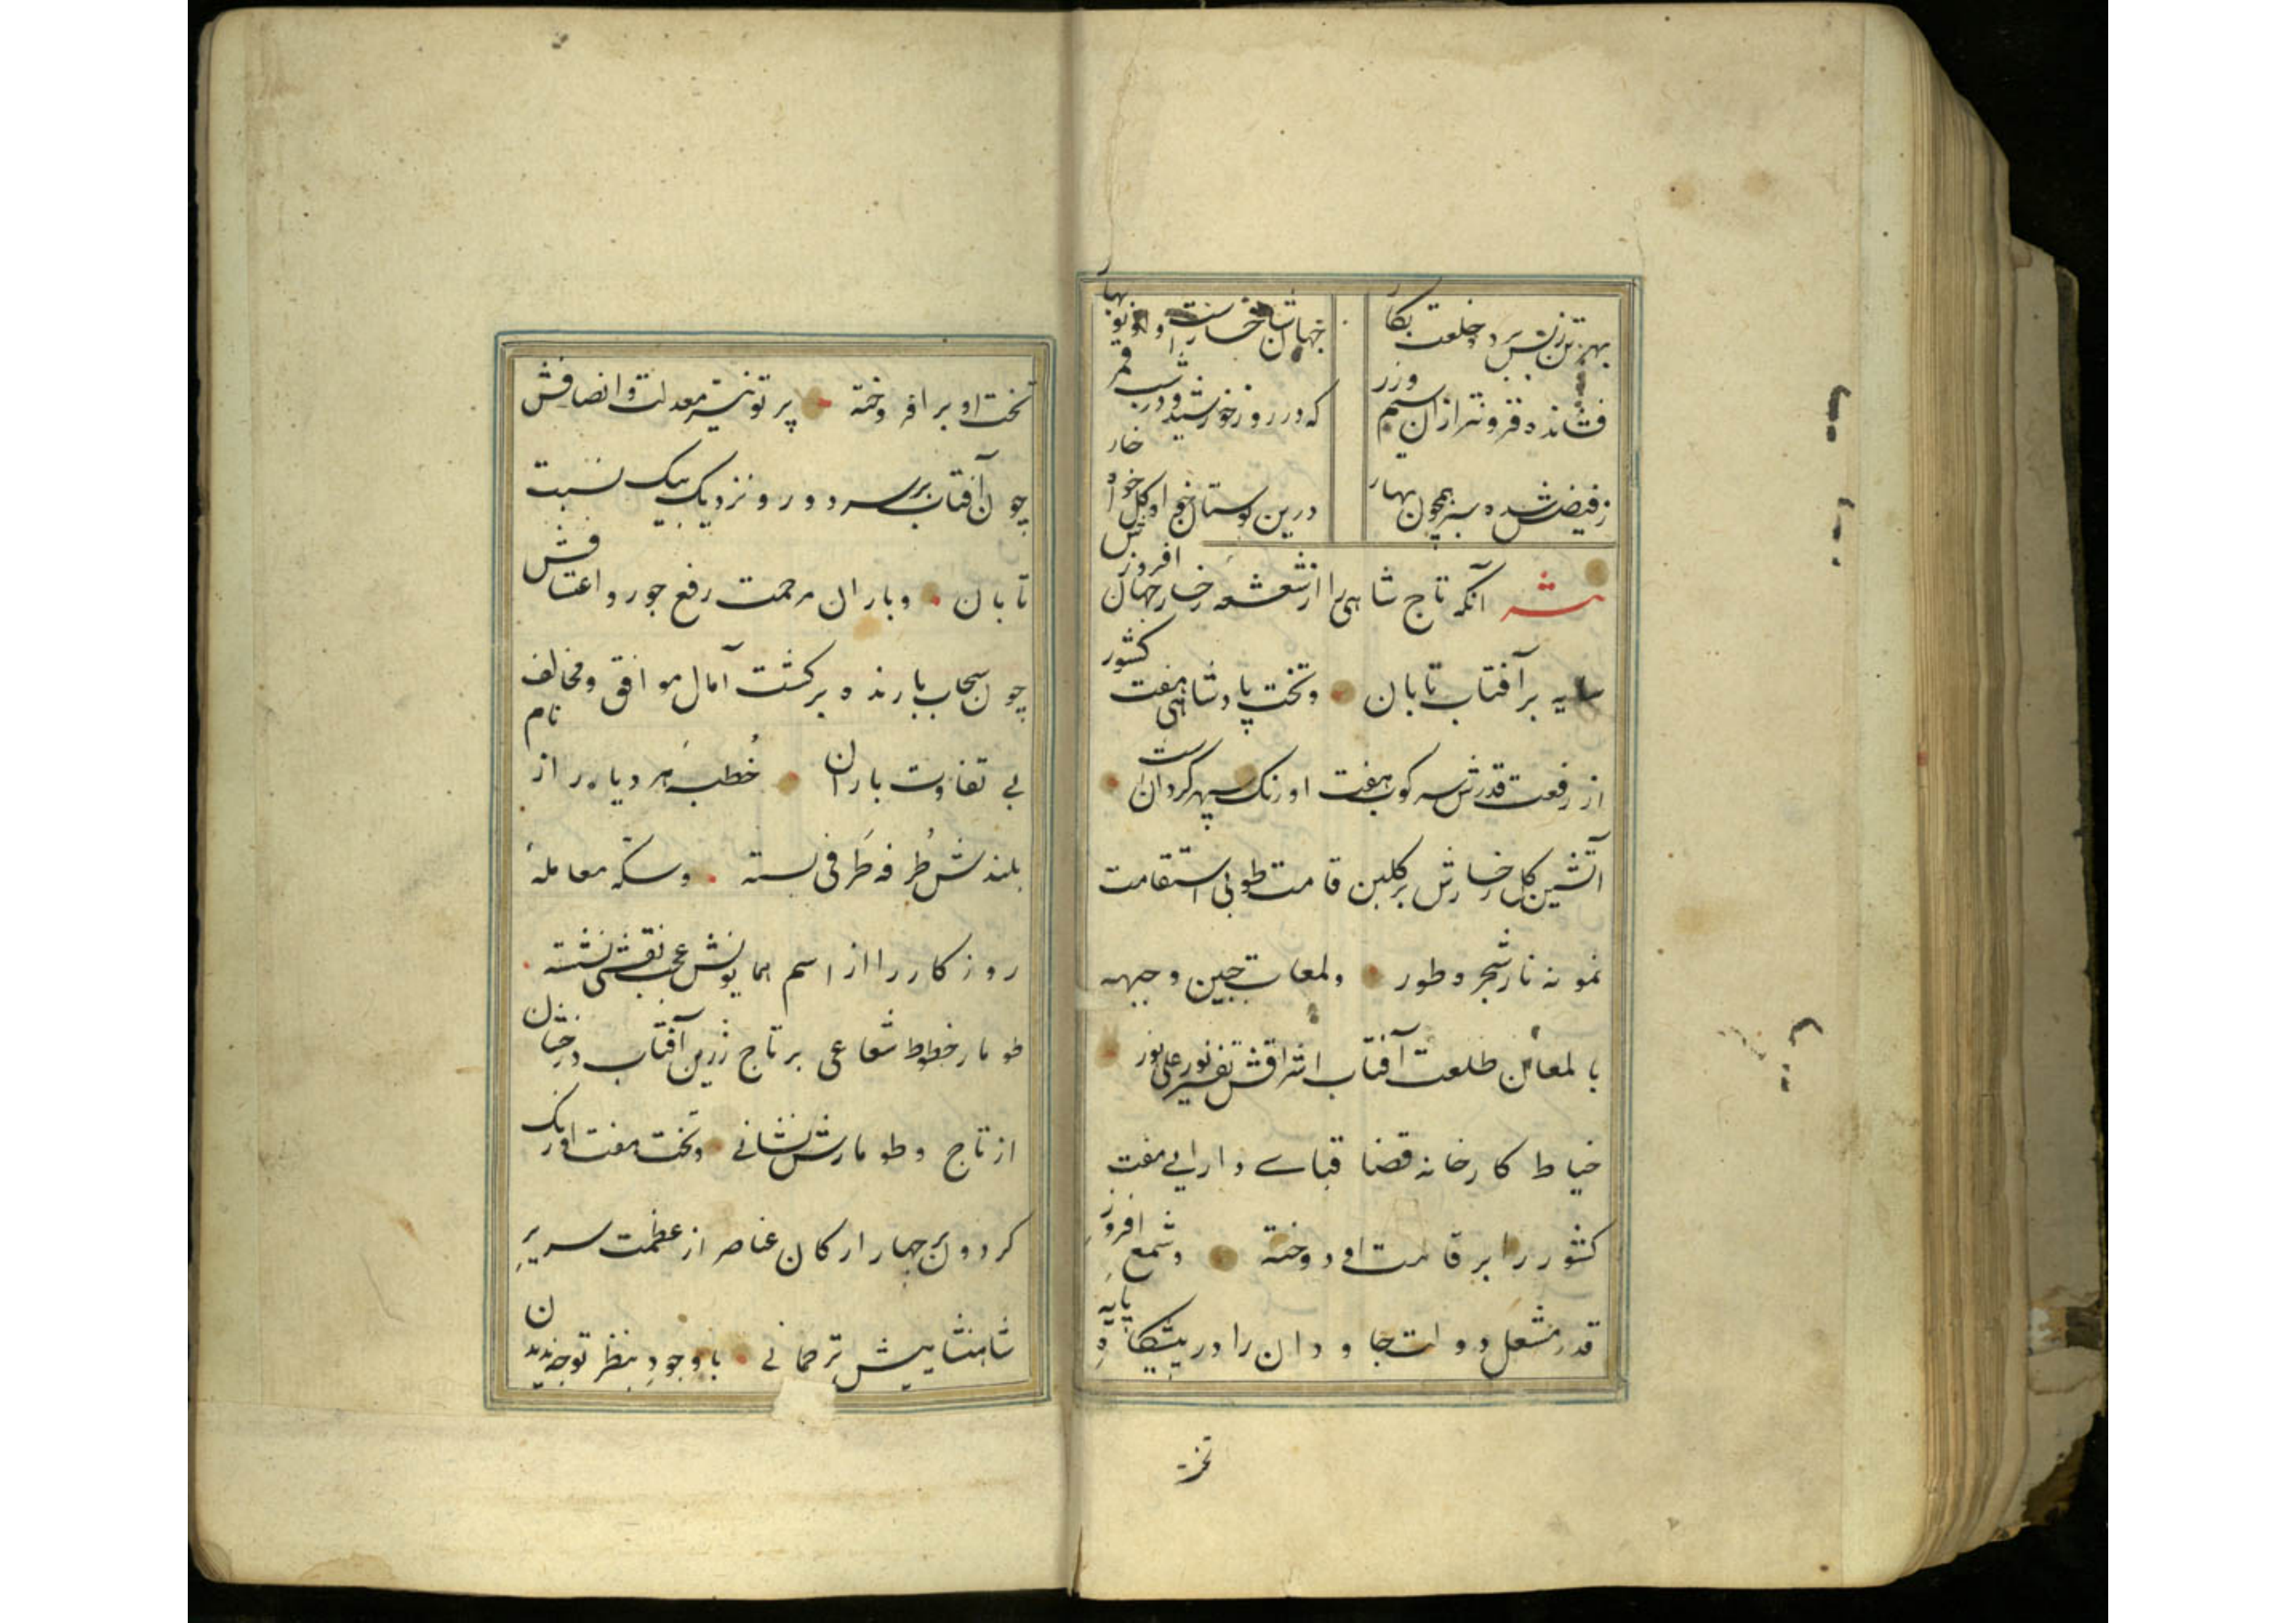 بهر تن زبس برد و خلعت بکار
جهان شاخسارست و او نوبهار
فشانده فزونتر ازان سیم وزر
که در روز خورشید و در شب قمر
ز فیضش شده سبز همچون بهار
درین بوستان خواه گل خواه خار
نثر آنکه تاج شاهی را از شعشعه رخسار جهان افروزش
سایه بر آفتاب تابان وتخت پادشاهی هفت کشور
از رفعت قدرش سرکوب هفت اورنک سپهر کردانست
آتشین کل رخسارش بر کلبن قامت طوبی استقامت
نمونه نار شجر وطور ولمعات جبین و جبهه
با لمعان طلعت آفتاب اشراقش تفسیر نور علی نور
خیاط کارخانه قضا قبای دارایی هفت
کشور را بر قامت او دوخته وشمع افروز
قدر مشعل دولت جاودان را در پیشکاه پایه
تخت
تخت او برافروخته پرتو نیر معدلت و انصافش
چون آفتاب بر سر دور و نزدیک بیک نسبت
تابان وباران مرحمت رفع جور و اعتسافش
چون سحاب بارنده بر کشت آمال موافق ومخالف
بی تفاوت باران خطبه هر دیار از نام
بلندش طرفه طرفی بسته وسکه معامله
روزکار را از اسم همایونش عجب نقشی نشسته
طومار خطوط شعاعی بر تاج زرین آفتاب درخشان
از تاج وطومارش نشانی وتخت هفت اورنک
کردون بر چهار ارکان عناصر از عظمت سریر
شاهنشاهیش ترجمانی با وجود بنظر توجه ندیدن